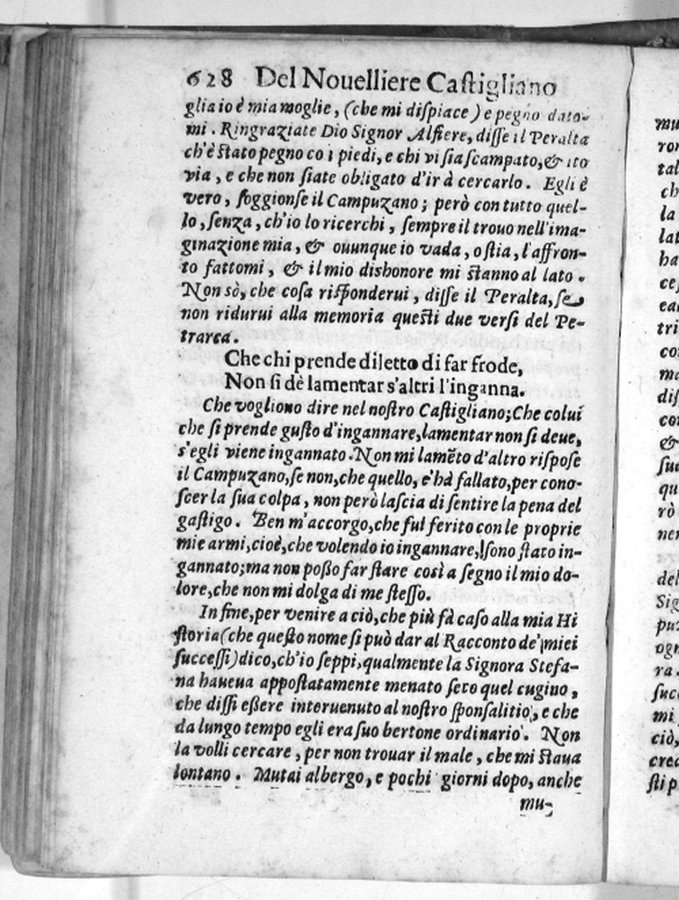 628 Del Nouelliere Castigliano
glia io è mia moglie, (che mi dispiace) e pegno dato-
mi. Ringraziate Dio Signor Alfiere, disse il Peralta
ch'è stato pegno co i piedi, e chi vi sia scampato, & ito
via, e che non siate obligato d'ir à cercarlo. Egli è
vero, soggionse il Campuzano; però con tutto quel-
lo, senza, ch'io lo ricerchi, sempre il trouo nell'ima-
ginazione mia, & ouunque io vada, o stia, l'affron-
to fattomi, & il mio dishonore mi stanno al lato.
Non sò, che cosa risponderui, disse il Peralta, se
non ridurui alla memoria questi due versi del Pe-
trarca.
Che chi prende diletto di far frode,
Non si dè lamentar s'altri l'inganna.
Che vogliono dire nel nostro Castigliano; Che colui
che si prende gusto d'ingannare, lamentar non si deue,
s'egli viene ingannato. Non mi lamẽto d'altro rispose
il Campuzano, se non, che quello, c'hà fallato, per cono-
scer la sua colpa, non però lascia di sentire la pena del
gastigo. Ben m'accorgo, che fui ferito con le proprie
mie armi, cioè, che volendo io ingannare, sono stato in-
gannato; ma non posso far stare così a segno il mio do-
lore, che non mi dolga di me stesso.
In fine, per venire a ciò, che più fà caso alla mia Hi
storia (che questo nome si può dar al Racconto de' miei
successi) dico, ch'io seppi, qualmente la Signora Stefa-
na haueua appostatamente menato seco quel cugino,
che dissi essere interuenuto al nostro sponsalitio, e che
da lungo tempo egli era suo bertone ordinario. Non
la volli cercare, per non trouar il male, che mi staua
lontano. Mutai albergo, e pochi giorni dopo, anche
mu-